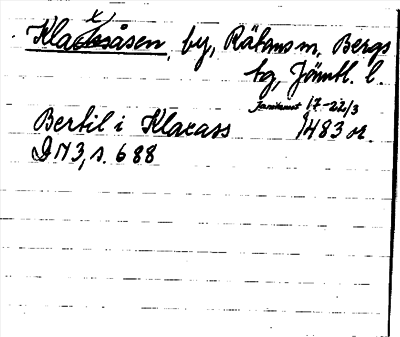 Klaxåsen, by, Rätans sn, Bergs
tg, Jämtl. l.
Jamtamot 17-22/3
Bertil i Klaxaas 1483 or.
DN3, s. 688